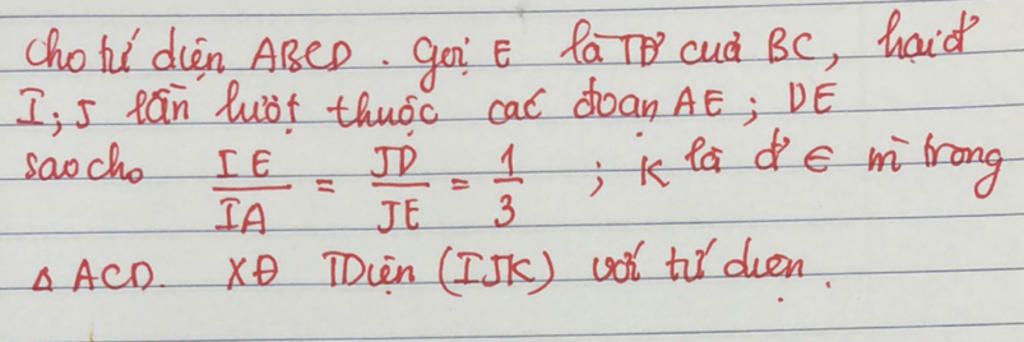 Cho tứ diện ABCD. Gọi E là TĐ của BC, hai đ'
I; J lần lượt thuộc các đoạn AE; DE
sao cho IE/IA = JD/JE = 1/3 ; K là đ' ∈ m` trong
Δ ACD. XĐ TDiện (IJK) với tứ diện.